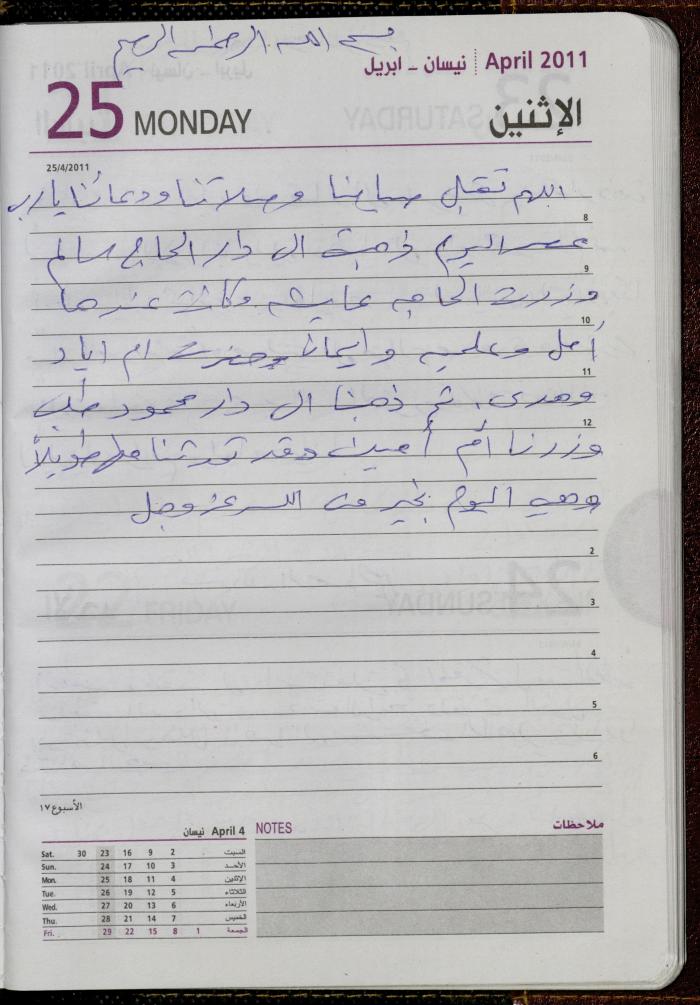 بسم الله الرحمن الرحيم
April 2011 نيسان ـ ابريل
25 MONDAY الإثنين
25/4/2011
اللهم تقبل صيامنا وصلاتنا ودعائنا يا رب
8
عصر اليوم ذهبت الى دار الحاج سالم
9
وزرت الحاجه عايشه وكانت عندها
10
أمل وعلميه وايمان وحضرت ام اياد
11
وهدى. ثم ذهبنا الى دار محمود
12
وزرنا أم أمين وقد تحدثنا طويلاً
وهي اليوم بخير من الله عز وجل
2
3
4
5
6
الأسبوع ١٧
April 4 نيسان
Sat. 30 23 16 9 2 السبت
Sun. 24 17 10 3 الأحد
Mon. 25 18 11 4 الإثنين
Tue. 26 19 12 5 الثلاثاء
Wed. 27 20 13 6 الأربعاء
Thu. 28 21 14 7 الخميس
Fri. 29 22 15 8 1 الجمعة
NOTES ملاحظات